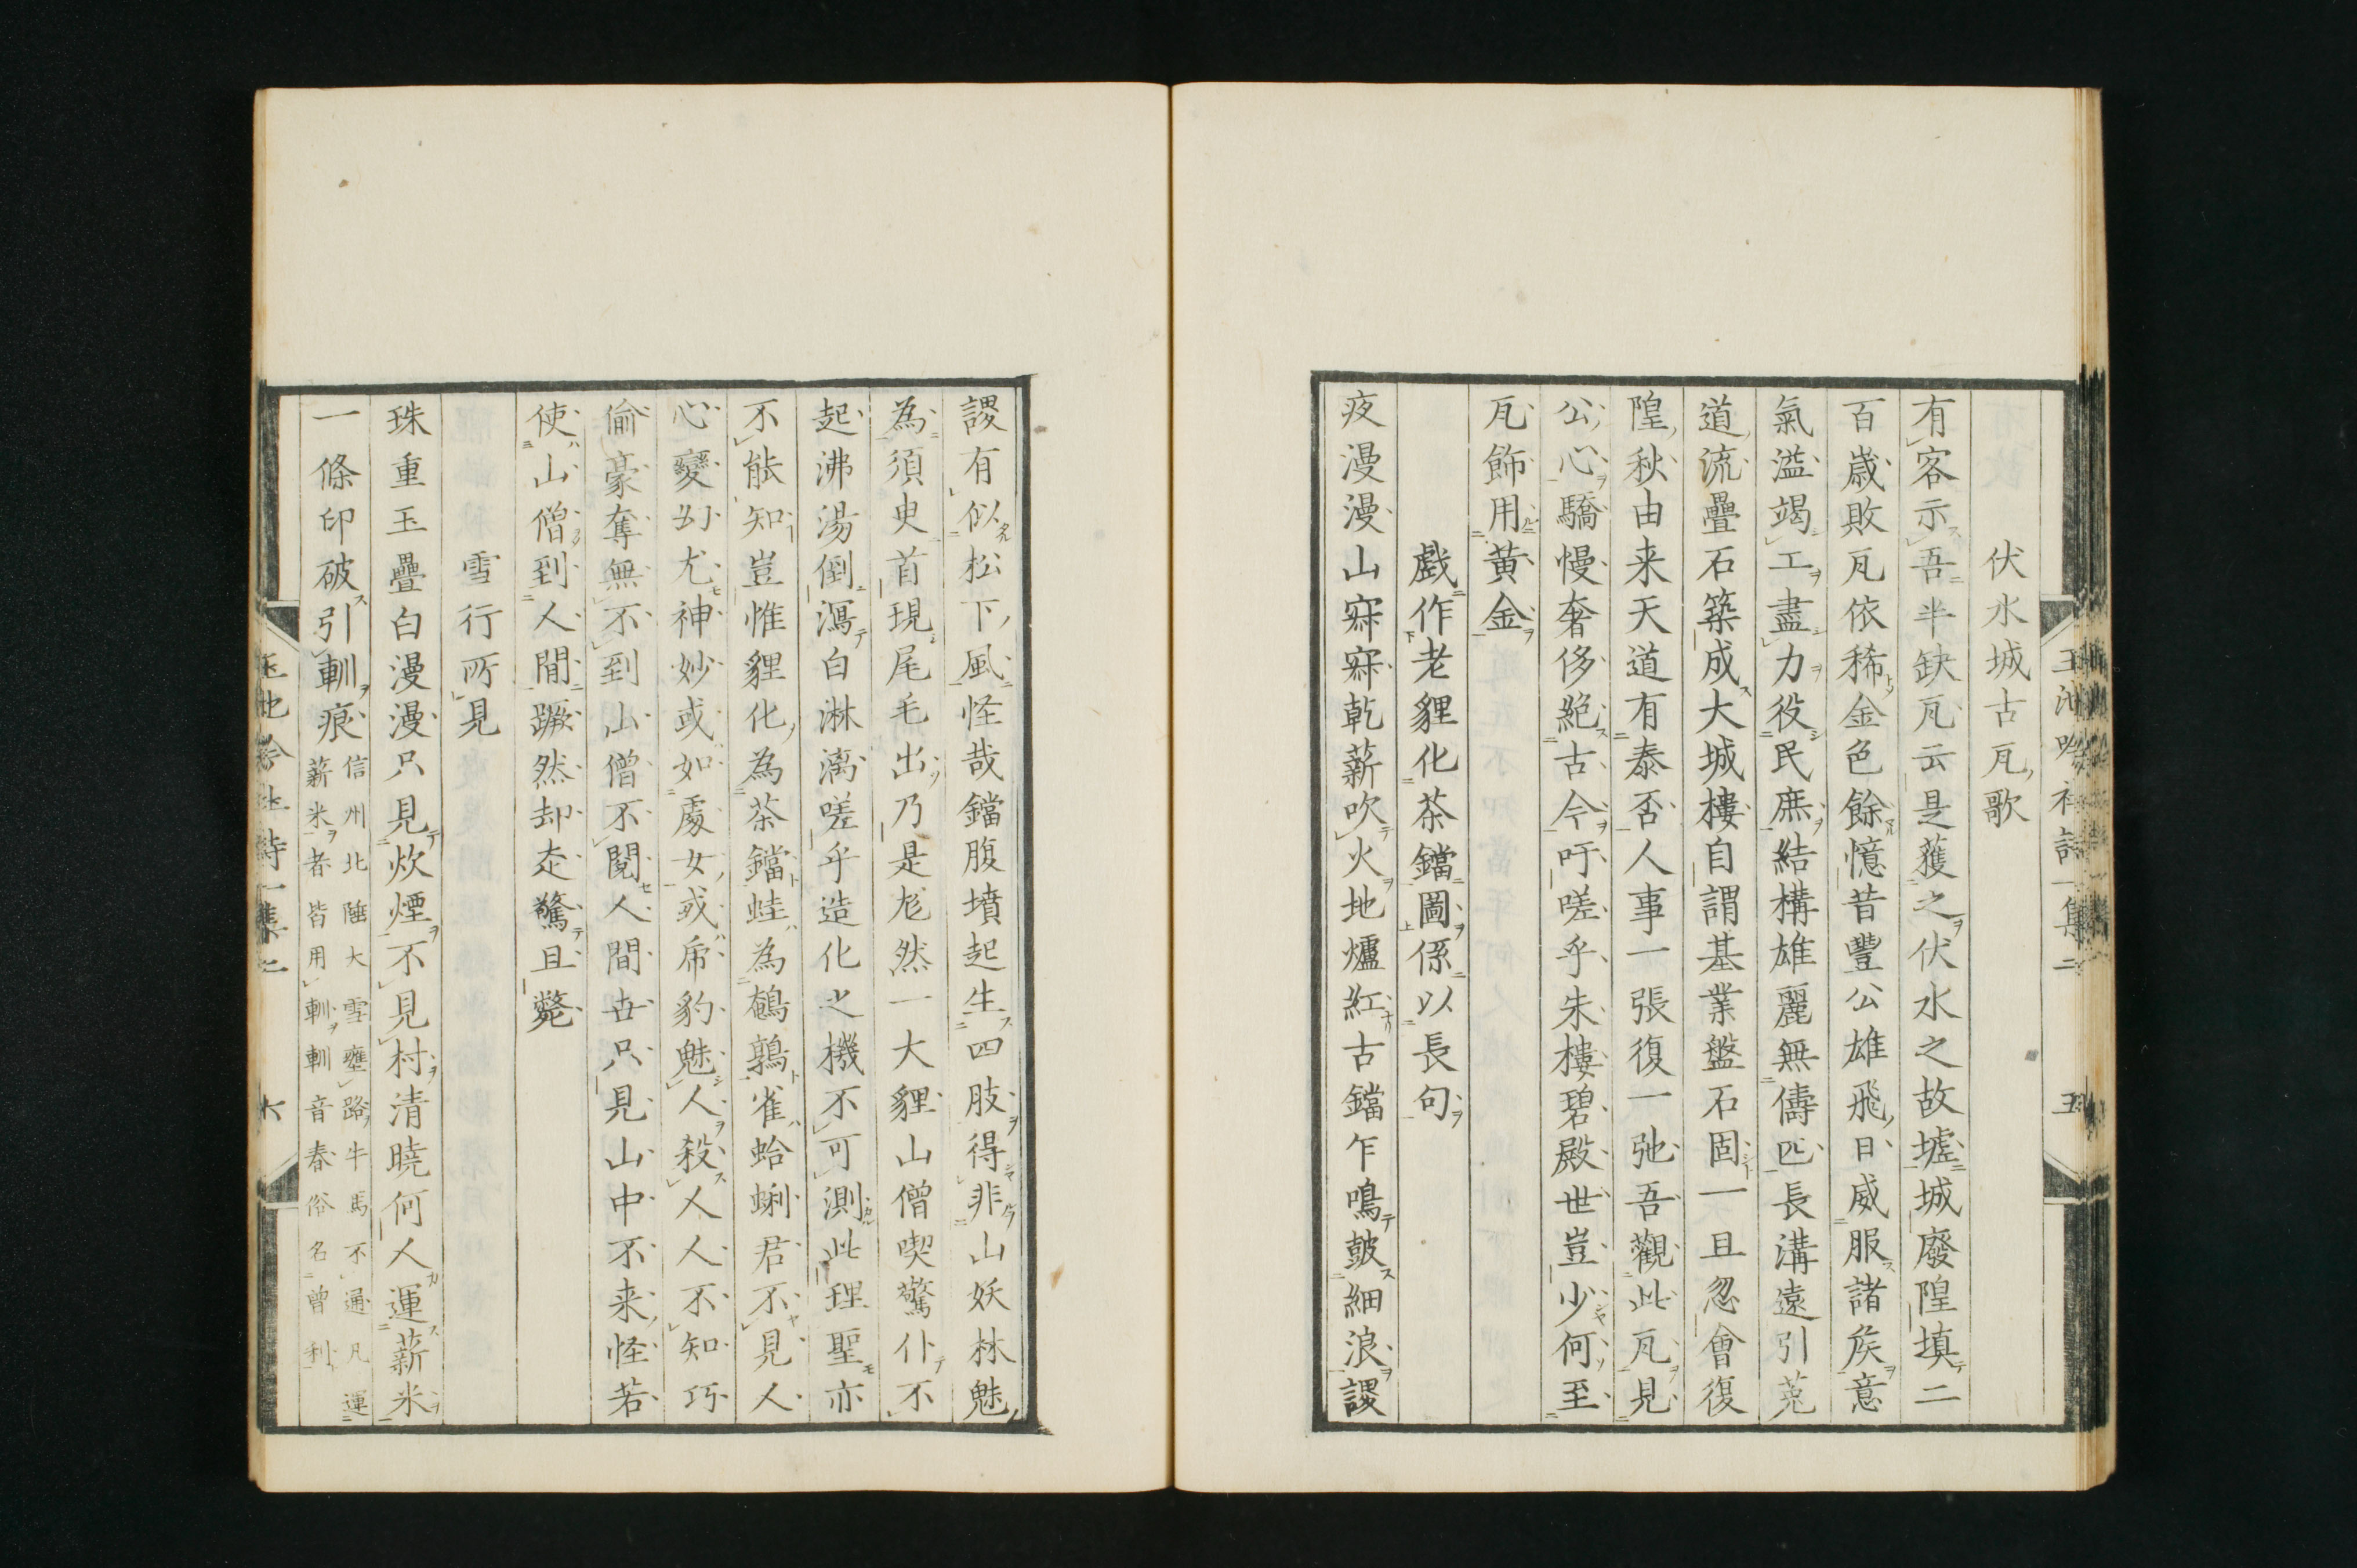 伏水城古瓦歌
有客示吾半缺瓦云是蕵之伏水之故墟城廢隍填二
百歲敗瓦依稀金色餘憶昔豐公雄飛日威服諸矦意
氣溢竭工盡力役民庶結構雄麗無儔匹長溝遠引菟
道流疊石築成大城樓自謂基業盤石固一旦忽會復
隍秋由来天道有泰否人事一張復一弛吾觀此瓦見
公心驕慢奢侈絕古今吁嗟乎朱樓碧殿世豈少何至
瓦飾用黄金
戲作老貍化茶鐺圖係以長句
夜漫漫山寂寂乾薪吹火地爐紅古鐺乍鳴皷細浪謖
謖有似松下風怪哉鐺腹墳起生四肢得非山妖林魅
為須臾首現尾毛出乃是尨然一大貍山僧喫驚仆不
起沸湯倒瀉白淋漓嗟乎造化之機不可測此理聖亦
不能知豈惟貍化為茶鐺蛙為鶴鶉雀蛤蜊君不見人
心變幻尤神妙或如處女或帍豹魅人殺人人不知巧
偷豪奪無不到山僧不閱人間世只見山中不来怪若
使山僧到人間蹶然却走驚且斃
雪行所見
珠重玉疊白漫漫只見炊煙不見村清曉何人運薪米
一條印破引輴痕
信州北陲大雪壅路牛馬不通凡運
薪米者皆用輴輴音春俗名曽利
玉池吟社詩一集二
五
玉池吟社詩一集二
六